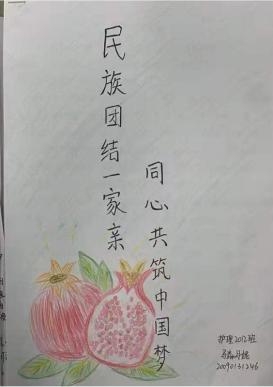 民族团结一家亲
同心共筑中国梦
护理2012班
20090131246